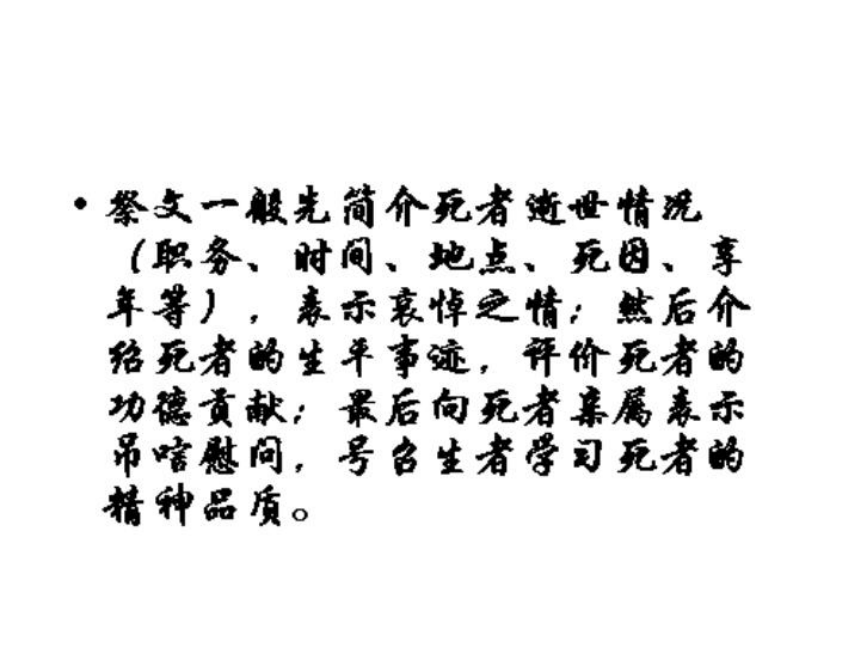 • 祭文一般先简介死者逝世情况
（职务、时间、地点、死因、享
年等），表示哀悼之情；然后介
绍死者的生平事迹，评价死者的
功德贡献；最后向死者亲属表示
吊唁慰问，号召生者学习死者的
精神品质。